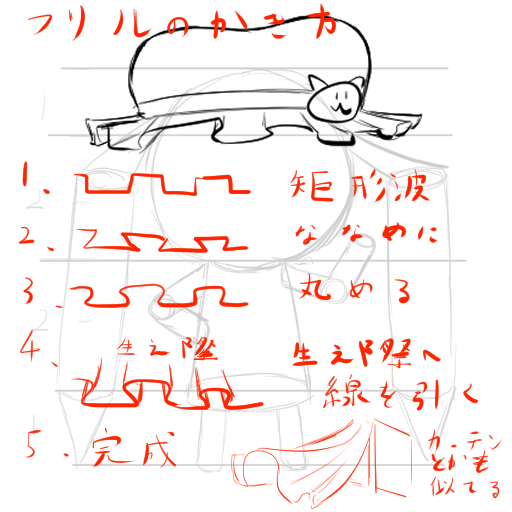 フリルのかき方
1、矩形波
2、ななめに
3、丸める
4、生え際 生え際へ
線を引く
5、完成
カーテン
とかも
似てる